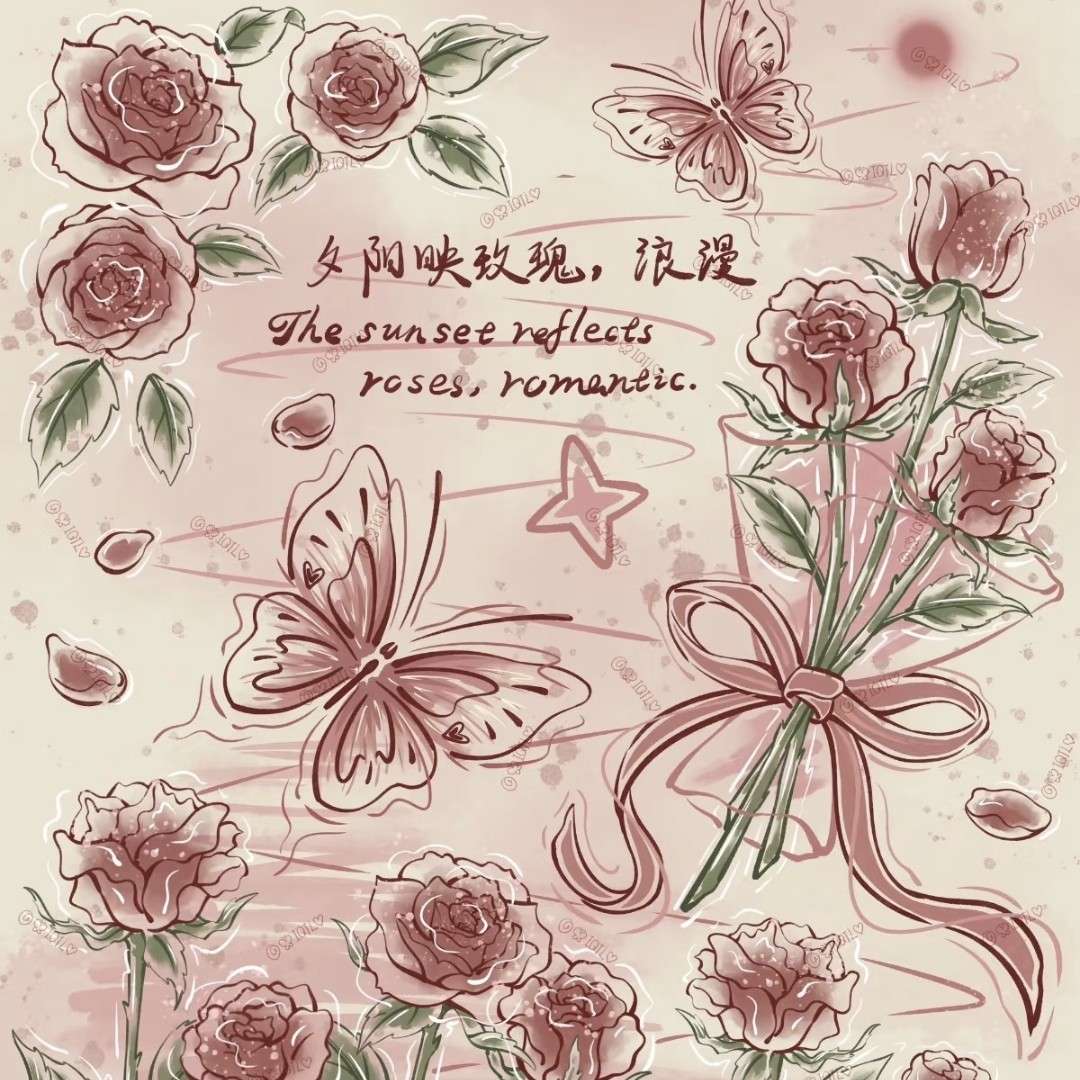 夕阳映玫瑰，浪漫
The sunset reflects
roses, romantic.